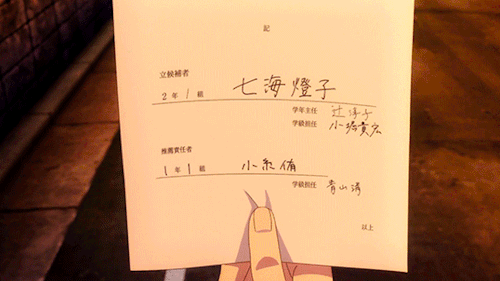 記
立候補者
2年 1 組 七海燈子
学年主任 辻淳子
学級担任 小堀貴宏
推薦責任者
1年 1 組 小糸侑
学級担任 青山清
以上